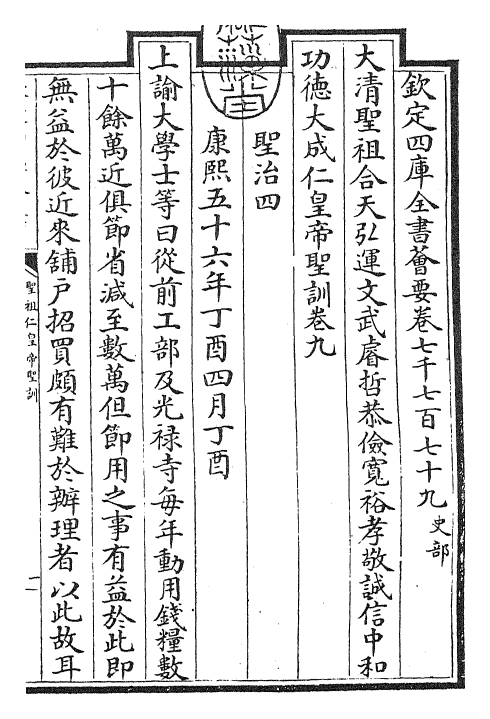 欽定四庫全書薈要卷七千七百七十九 史部
大清聖祖合天弘運文武睿哲恭儉寬裕孝敬誠信中和
功德大成仁皇帝聖訓卷九
聖治四
康熙五十六年丁酉四月丁酉
上諭大學士等曰從前工部及光禄寺每年動用錢糧數
十餘萬近俱節省減至數萬但節用之事有益於此即
無益於彼近來舖户招買頗有難於辦理者以此故耳
聖祖仁皇帝聖訓
一